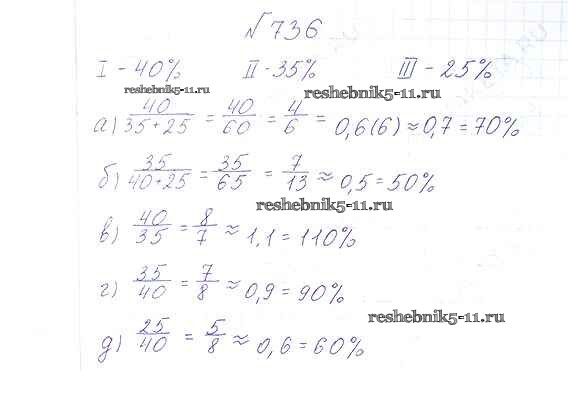 №736
I - 40% II - 35% III - 25%
reshebnik5-11.ru
reshebnik5-11.ru
а) 40/(35+25) = 40/60 = 4/6 = 0,6(6) ≈ 0,7 = 70%
б) 35/(40+25) = 35/65 = 7/13 ≈ 0,5 = 50%
reshebnik5-11.ru
в) 40/35 = 8/7 ≈ 1,1 = 110%
г) 35/40 = 7/8 ≈ 0,9 = 90%
reshebnik5-11.ru
д) 25/40 = 5/8 ≈ 0,6 = 60%